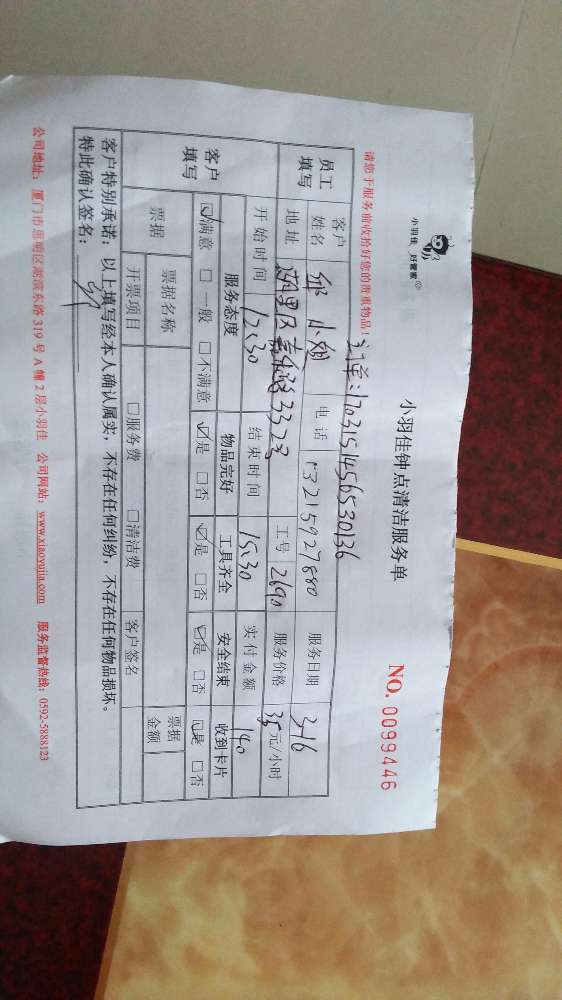 小羽佳 好管家
小羽佳钟点清洁服务单
NO. 0099446
请您于服务前收拾好您的贵重物品！
订单:1703151456530136
员工填写 客户姓名 小姐 电话 13215927880 服务日期 3.16
地址 湖里区 332号 工号 2690 服务价格 35元/小时
开始时间 12:30 结束时间 15:30 实付金额 140
客户填写 服务态度 物品完好 工具齐全 安全结束 收到卡片
☑满意 □一般 □不满意 ☑是 □否 ☑是 □否 ☑是 □否 ☑是 □否
票据 票据名称 票据金额
开票项目 □服务费 □清洁费 客户签名
客户特别承诺：以上填写经本人确认属实，不存在任何纠纷，不存在任何物品损坏。
特此确认签名：
公司地址：厦门市思明区湖滨东路 319 号 A 幢 2 层小羽佳 公司网站：www.xiaoyujia.com 服务监督热线：0592-5888123